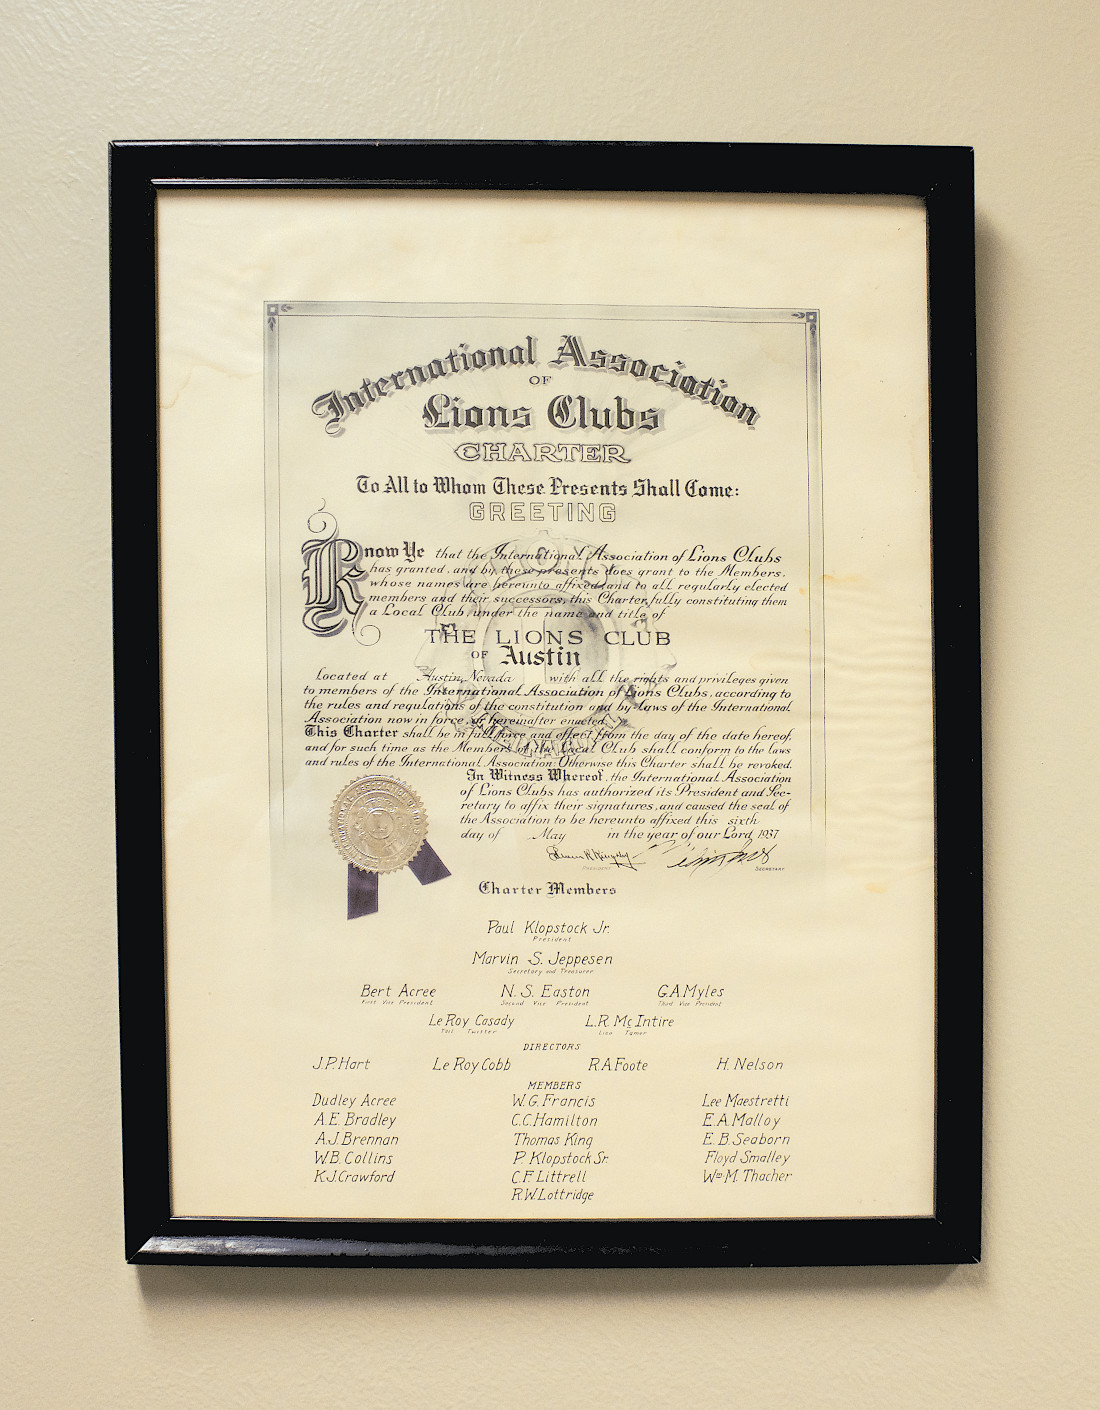 International Association
OF
Lions Clubs
CHARTER
To All to Whom These Presents Shall Come:
GREETING
Know Ye that the International Association of Lions Clubs
has granted, and by these presents does grant to the Members,
whose names are hereunto affixed and to all regularly elected
members and their successors, this Charter, fully constituting them
a Local Club, under the name and title of
THE LIONS CLUB
OF Austin
Located at Austin, Nevada with all the rights and privileges given
to members of the International Association of Lions Clubs, according to
the rules and regulations of the constitution and by-laws of the International
Association now in force, or hereinafter enacted.
This Charter shall be in full force and effect from the day of the date hereof,
and for such time as the Members of the Local Club shall conform to the laws
and rules of the International Association. Otherwise this Charter shall be revoked.
In Witness Whereof, the International Association
of Lions Clubs has authorized its President and Sec-
retary to affix their signatures, and caused the seal of
the Association to be hereunto affixed this sixth
day of May in the year of our Lord, 1937
PRESIDENT
SECRETARY
Charter Members
Paul Klopstock Jr.
President
Marvin S. Jeppesen
Secretary and Treasurer
Bert Acree N. S. Easton G.A. Myles
First Vice President Second Vice President Third Vice President
Le Roy Casady L.R. McIntire
Tail Twister Lion Tamer
DIRECTORS
J.P. Hart Le Roy Cobb R.A. Foote H. Nelson
MEMBERS
Dudley Acree W.G. Francis Lee Maestretti
A.E. Bradley C.C. Hamilton E.A. Malloy
A.J. Brennan Thomas King E.B. Seaborn
W.B. Collins P. Klopstock Sr. Floyd Smalley
K.J. Crawford C.F. Littrell Wm. M. Thacher
R.W. Lottridge